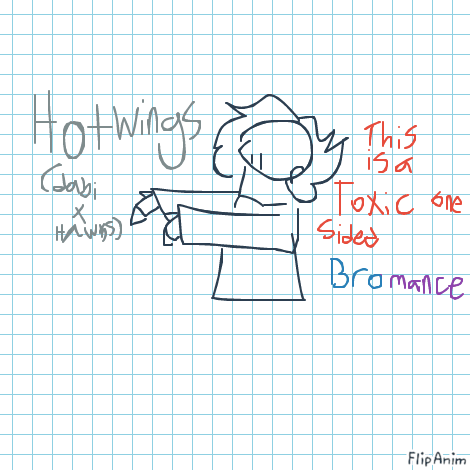 Hotwings
(dabi
x
Hawks)
This
is a
Toxic one
sided
Bromance
FlipAnim